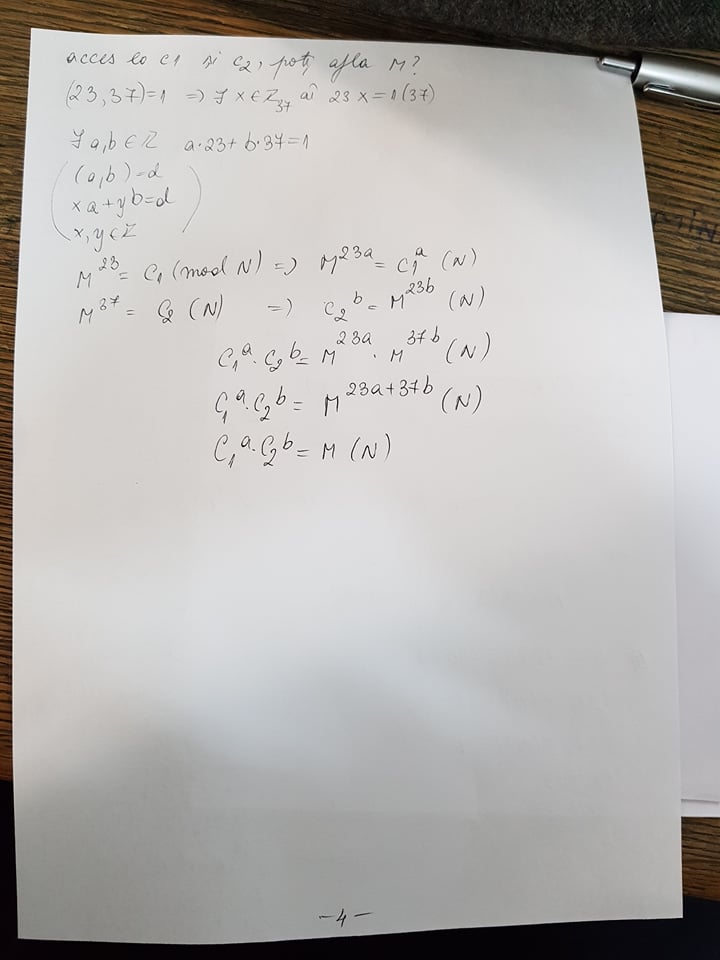 acces la C1 și C2, poți afla M?
(23,37)=1 => ∃ x ∈ Z₃₇ aî 23 x = 1 (37)
∃ a,b ∈ Z a·23 + b·37 = 1
(a,b) = d
xa + yb = d
x,y ∈ Z
M²³ = C₁ (mod N) => M²³ᵃ = C₁ᵃ (N)
M³⁷ = C₂ (N) => C₂ᵇ = M²³ᵇ (N)
C₁ᵃ · C₂ᵇ = M²³ᵃ · M³⁷ᵇ (N)
C₁ᵃ · C₂ᵇ = M²³ᵃ⁺³⁷ᵇ (N)
C₁ᵃ · C₂ᵇ = M (N)
-4-